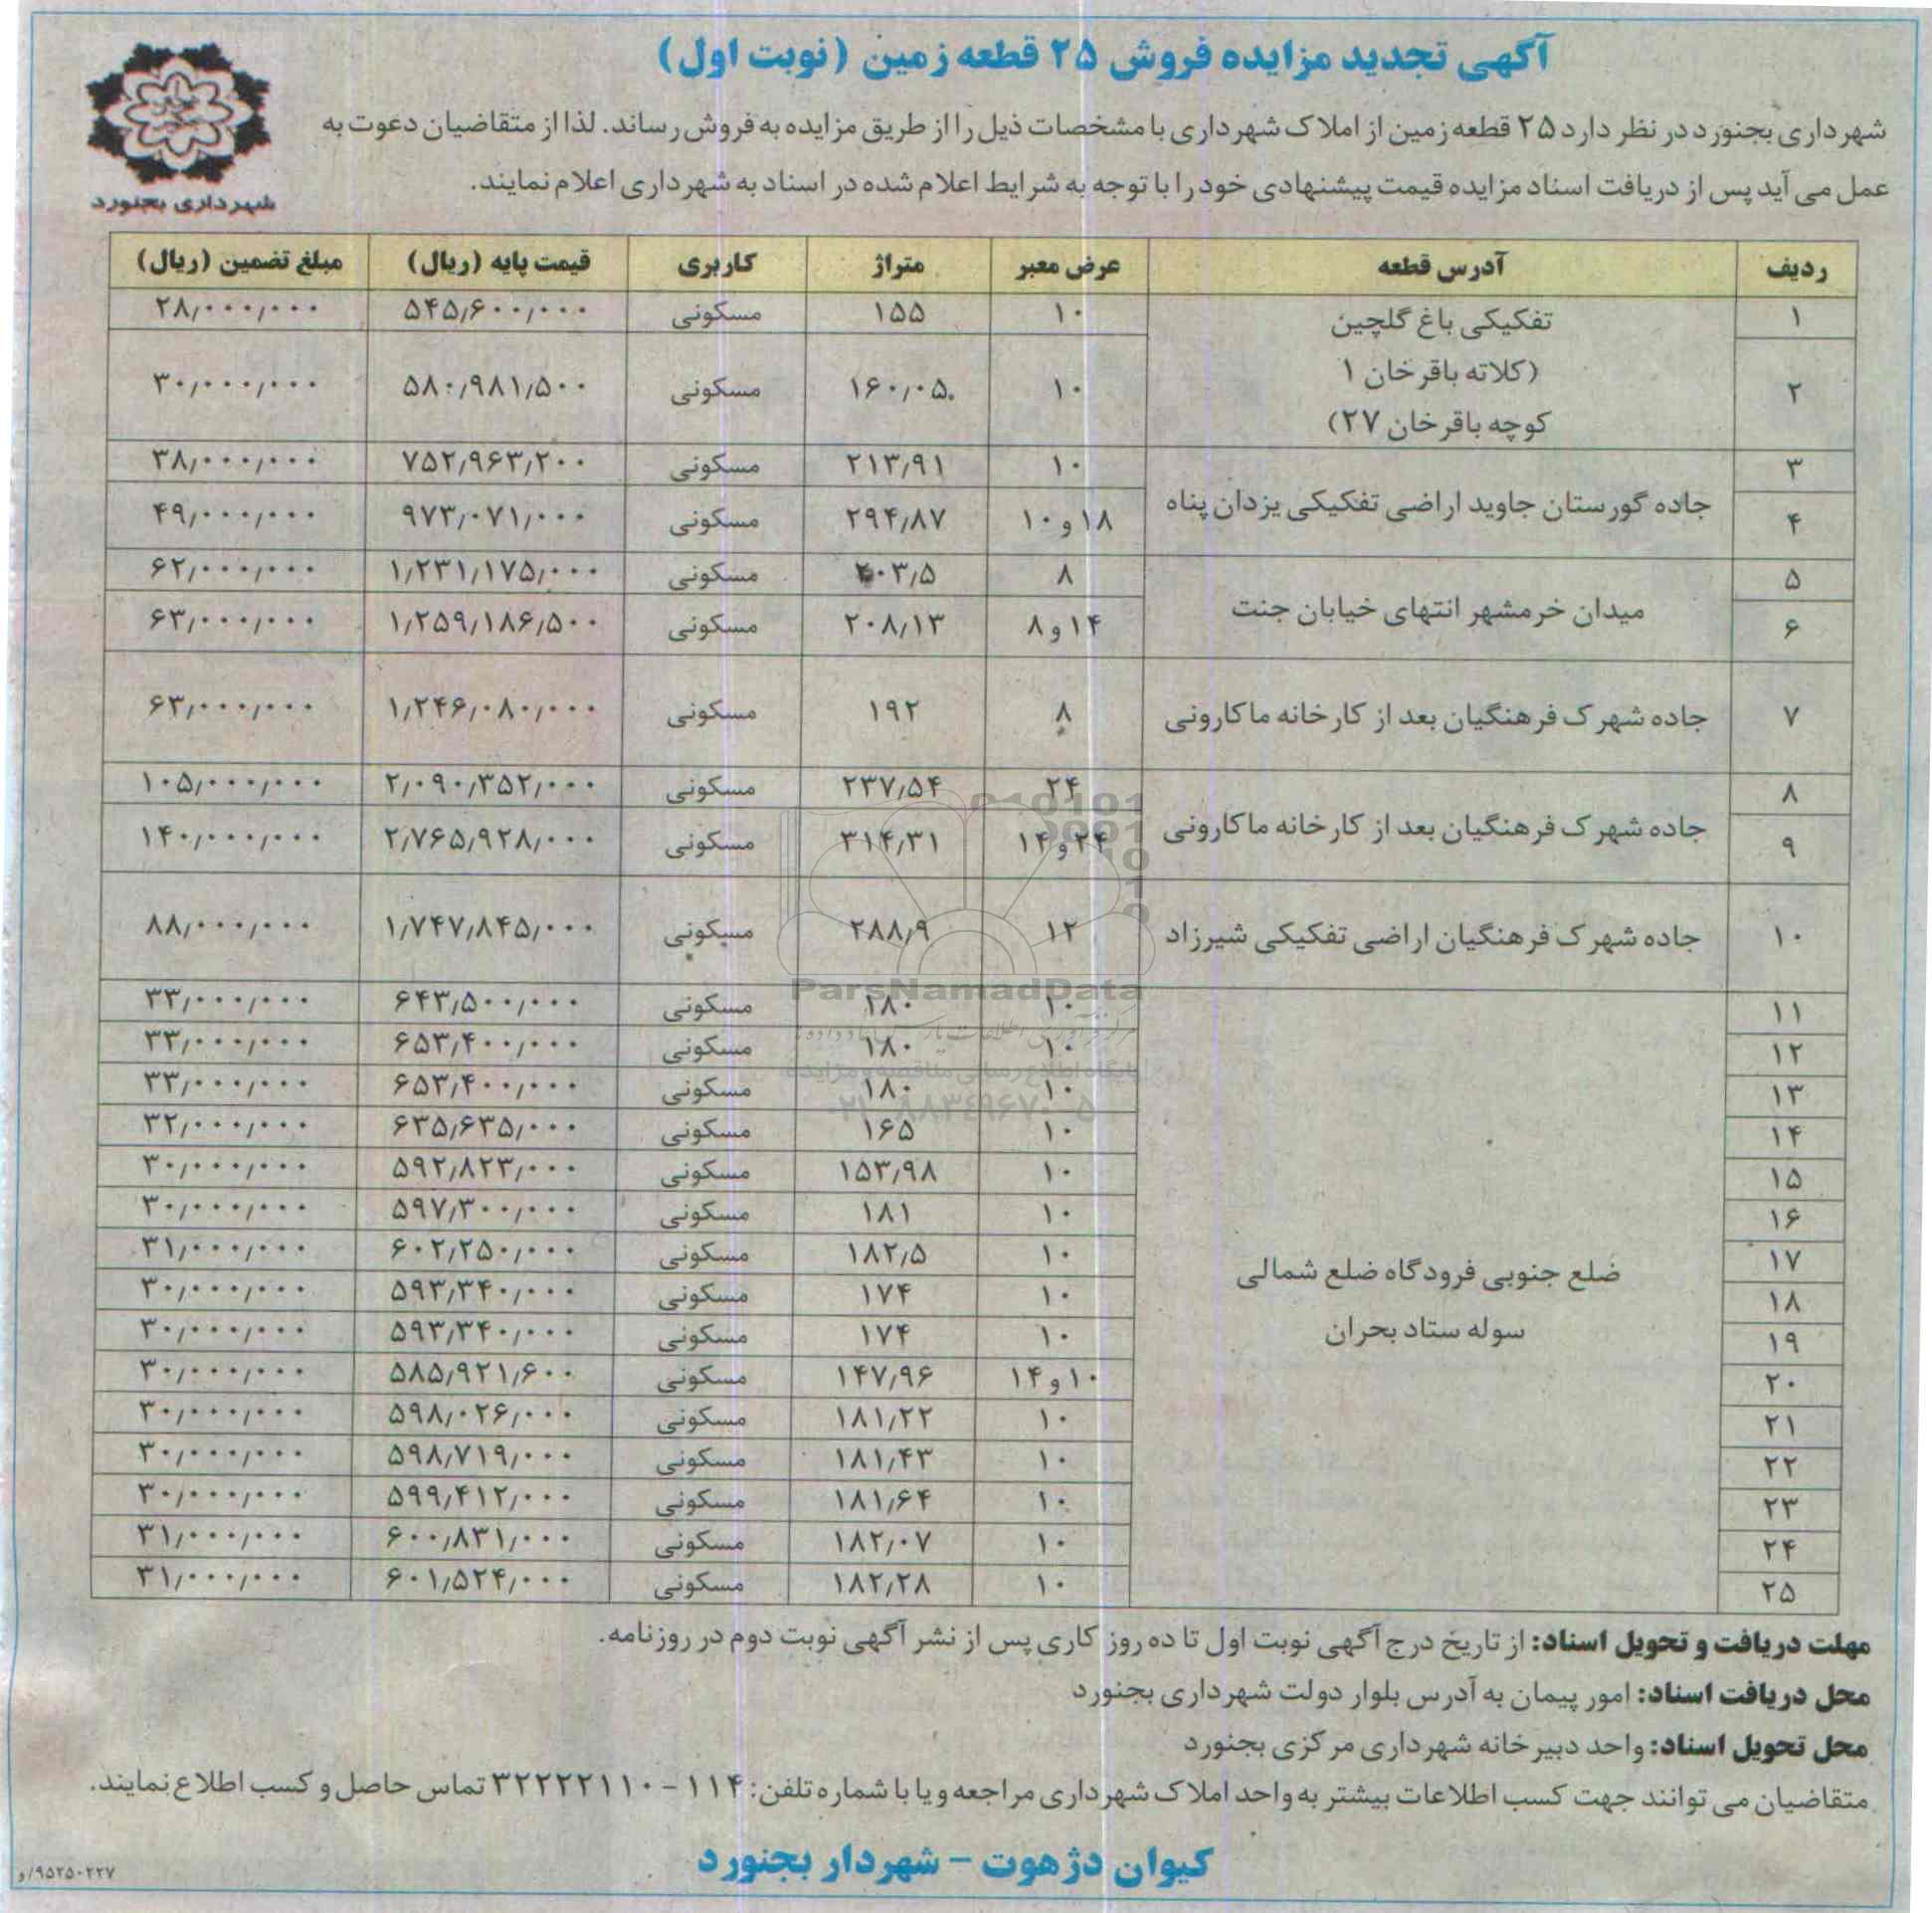 آگهی تجدید مزایده فروش ۲۵ قطعه زمین (نوبت اول)
شهرداری بجنورد
شهرداری بجنورد در نظر دارد ۲۵ قطعه زمین از املاک شهرداری با مشخصات ذیل را از طریق مزایده به فروش رساند. لذا از متقاضیان دعوت به
عمل می آید پس از دریافت اسناد مزایده قیمت پیشنهادی خود را با توجه به شرایط اعلام شده در اسناد به شهرداری اعلام نمایند.
ردیف آدرس قطعه عرض معبر متراژ کاربری قیمت پایه (ریال) مبلغ تضمین (ریال)
۱ تفکیکی باغ گلچین ۱۰ ۱۵۵ مسکونی ۵۴۵٫۶۰۰٫۰۰۰ ۲۸٫۰۰۰٫۰۰۰
(کلاته باقرخان ۱
۲ ۱۰ ۱۶۰٫۰۵ مسکونی ۵۸۰٫۹۸۱٫۵۰۰ ۳۰٫۰۰۰٫۰۰۰
کوچه باقرخان ۲۷)
۳ ۱۰ ۲۱۳٫۹۱ مسکونی ۷۵۲٫۹۶۳٫۲۰۰ ۳۸٫۰۰۰٫۰۰۰
جاده گورستان جاوید اراضی تفکیکی یزدان پناه
۴ ۱۸ و ۱۰ ۲۹۴٫۸۷ مسکونی ۹۷۳٫۰۷۱٫۰۰۰ ۴۹٫۰۰۰٫۰۰۰
۵ ۸ ۰۳٫۵ مسکونی ۱٫۲۳۱٫۱۷۵٫۰۰۰ ۶۲٫۰۰۰٫۰۰۰
میدان خرمشهر انتهای خیابان جنت
۶ ۱۴ و ۸ ۲۰۸٫۱۳ مسکونی ۱٫۲۵۹٫۱۸۶٫۵۰۰ ۶۳٫۰۰۰٫۰۰۰
۷ جاده شهرک فرهنگیان بعد از کارخانه ماکارونی ۸ ۱۹۲ مسکونی ۱٫۲۴۶٫۰۸۰٫۰۰۰ ۶۳٫۰۰۰٫۰۰۰
۸ ۲۴ ۲۳۷٫۵۴ مسکونی ۲٫۰۹۰٫۳۵۲٫۰۰۰ ۱۰۵٫۰۰۰٫۰۰۰
جاده شهرک فرهنگیان بعد از کارخانه ماکارونی
۹ ۲۴ و ۱۴ ۳۱۴٫۳۱ مسکونی ۲٫۷۶۵٫۹۲۸٫۰۰۰ ۱۴۰٫۰۰۰٫۰۰۰
۱۰ جاده شهرک فرهنگیان اراضی تفکیکی شیرزاد ۱۲ ۲۸۸٫۹ مسکونی ۱٫۷۴۷٫۸۴۵٫۰۰۰ ۸۸٫۰۰۰٫۰۰۰
۱۱ ۱۰ ۱۸۰ مسکونی ۶۴۳٫۵۰۰٫۰۰۰ ۳۳٫۰۰۰٫۰۰۰
۱۲ ۱۰ ۱۸۰ مسکونی ۶۵۳٫۴۰۰٫۰۰۰ ۳۳٫۰۰۰٫۰۰۰
۱۳ ۱۰ ۱۸۰ مسکونی ۶۵۳٫۴۰۰٫۰۰۰ ۳۳٫۰۰۰٫۰۰۰
۱۴ ۱۰ ۱۶۵ مسکونی ۶۳۵٫۶۳۵٫۰۰۰ ۳۲٫۰۰۰٫۰۰۰
۱۵ ۱۰ ۱۵۳٫۹۸ مسکونی ۵۹۲٫۸۲۳٫۰۰۰ ۳۰٫۰۰۰٫۰۰۰
۱۶ ۱۰ ۱۸۱ مسکونی ۵۹۷٫۳۰۰٫۰۰۰ ۳۰٫۰۰۰٫۰۰۰
۱۷ ۱۰ ۱۸۲٫۵ مسکونی ۶۰۲٫۲۵۰٫۰۰۰ ۳۱٫۰۰۰٫۰۰۰
ضلع جنوبی فرودگاه ضلع شمالی
۱۸ ۱۰ ۱۷۴ مسکونی ۵۹۳٫۳۴۰٫۰۰۰ ۳۰٫۰۰۰٫۰۰۰
سوله ستاد بحران
۱۹ ۱۰ ۱۷۴ مسکونی ۵۹۳٫۳۴۰٫۰۰۰ ۳۰٫۰۰۰٫۰۰۰
۲۰ ۱۰ و ۱۴ ۱۴۷٫۹۶ مسکونی ۵۸۵٫۹۲۱٫۶۰۰ ۳۰٫۰۰۰٫۰۰۰
۲۱ ۱۰ ۱۸۱٫۲۲ مسکونی ۵۹۸٫۰۲۶٫۰۰۰ ۳۰٫۰۰۰٫۰۰۰
۲۲ ۱۰ ۱۸۱٫۴۳ مسکونی ۵۹۸٫۷۱۹٫۰۰۰ ۳۰٫۰۰۰٫۰۰۰
۲۳ ۱۰ ۱۸۱٫۶۴ مسکونی ۵۹۹٫۴۱۲٫۰۰۰ ۳۰٫۰۰۰٫۰۰۰
۲۴ ۱۰ ۱۸۲٫۰۷ مسکونی ۶۰۰٫۸۳۱٫۰۰۰ ۳۱٫۰۰۰٫۰۰۰
۲۵ ۱۰ ۱۸۲٫۲۸ مسکونی ۶۰۱٫۵۲۴٫۰۰۰ ۳۱٫۰۰۰٫۰۰۰
ParsNamadData
مهلت دریافت و تحویل اسناد: از تاریخ درج آگهی نوبت اول تا ده روز کاری پس از نشر آگهی نوبت دوم در روزنامه.
محل دریافت اسناد: امور پیمان به آدرس بلوار دولت شهرداری بجنورد
محل تحویل اسناد: واحد دبیرخانه شهرداری مرکزی بجنورد
متقاضیان می توانند جهت کسب اطلاعات بیشتر به واحد املاک شهرداری مراجعه و یا با شماره تلفن: ۱۱۴ - ۳۲۲۲۲۱۱۰ تماس حاصل و کسب اطلاع نمایند.
کیوان دژهوت - شهردار بجنورد
۹۵۲۵۰۲۲۷/و